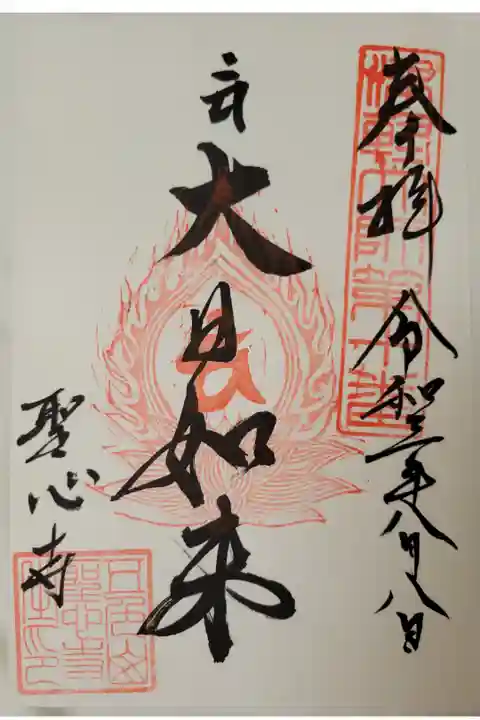 奉拝 令和三年八月八日
大日如来
聖心寺